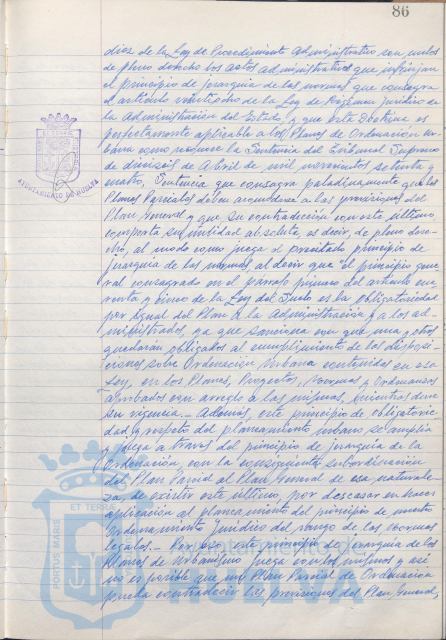 86
diez de la Ley de Procedimiento Administrativo son nulos
de pleno derecho los actos administrativos que infrinjan
el principio de jerarquía de las normas que consagra
el artículo veintiocho de la Ley de Régimen Jurídico de
la Administración del Estado, y que esta Doctrina es
perfectamente aplicable a los Planes de Ordenación ur-
bana como reconoce la Sentencia del Tribunal Supremo
de dieciséis de Abril de mil novecientos setenta y
cuatro, Sentencia que consagra paladinamente que los
Planes Parciales deben acomodarse a las previsiones del
Plan General y que su contradicción con este último
comporta su nulidad absoluta, es decir, de pleno dere-
cho, al modo como juega el precitado principio de
jerarquía de las normas, al decir que "el principio gene-
ral consagrado en el párrafo primero del artículo cua-
renta y cinco de la Ley del Suelo es la obligatoriedad
por igual del Plan a la Administración y a los ad-
ministrados, ya que sanciona con que una y otros
quedarán obligados al cumplimiento de las disposi-
ciones sobre Ordenación urbana contenidas en esa
Ley, en los Planes, Proyectos, Normas y Ordenanzas
aprobados con arreglo a las mismas, mientras dure
su vigencia.- Además, este principio de obligatorie-
dad y respeto del planeamiento urbano se amplía
y juega a través del principio de jerarquía de la
Ordenación, con la consiguiente subordinación
del Plan Parcial al Plan General de esa naturale-
za, de existir este último, por descansar en hacer
aplicación al planeamiento del principio de nuestro
Ordenamiento Jurídico del rango de las normas
legales.- Por eso, este principio de jerarquía de los
Planes de Urbanismo juega con los mismos y así
no es posible que un Plan Parcial de Ordenación
pueda contradecir las previsiones del Plan General,
AYUNTAMIENTO DE HUELVA
PORTUS MARIS ET TERRAE
Ayuntamiento de
HUELVA